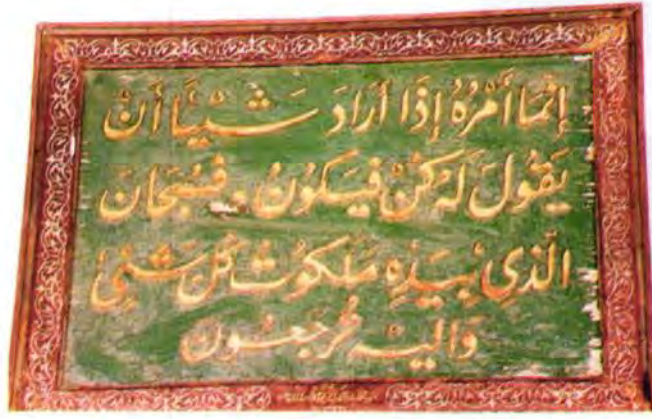 إِنَّمَا أَمْرُهُ إِذَا أَرَادَ شَيْئًا أَنْ
يَقُولَ لَهُ كُنْ فَيَكُونُ . فَسُبْحَانَ
الَّذِي بِيَدِهِ مَلَكُوتُ كُلِّ شَيْءٍ
وَإِلَيْهِ تُرْجَعُونَ